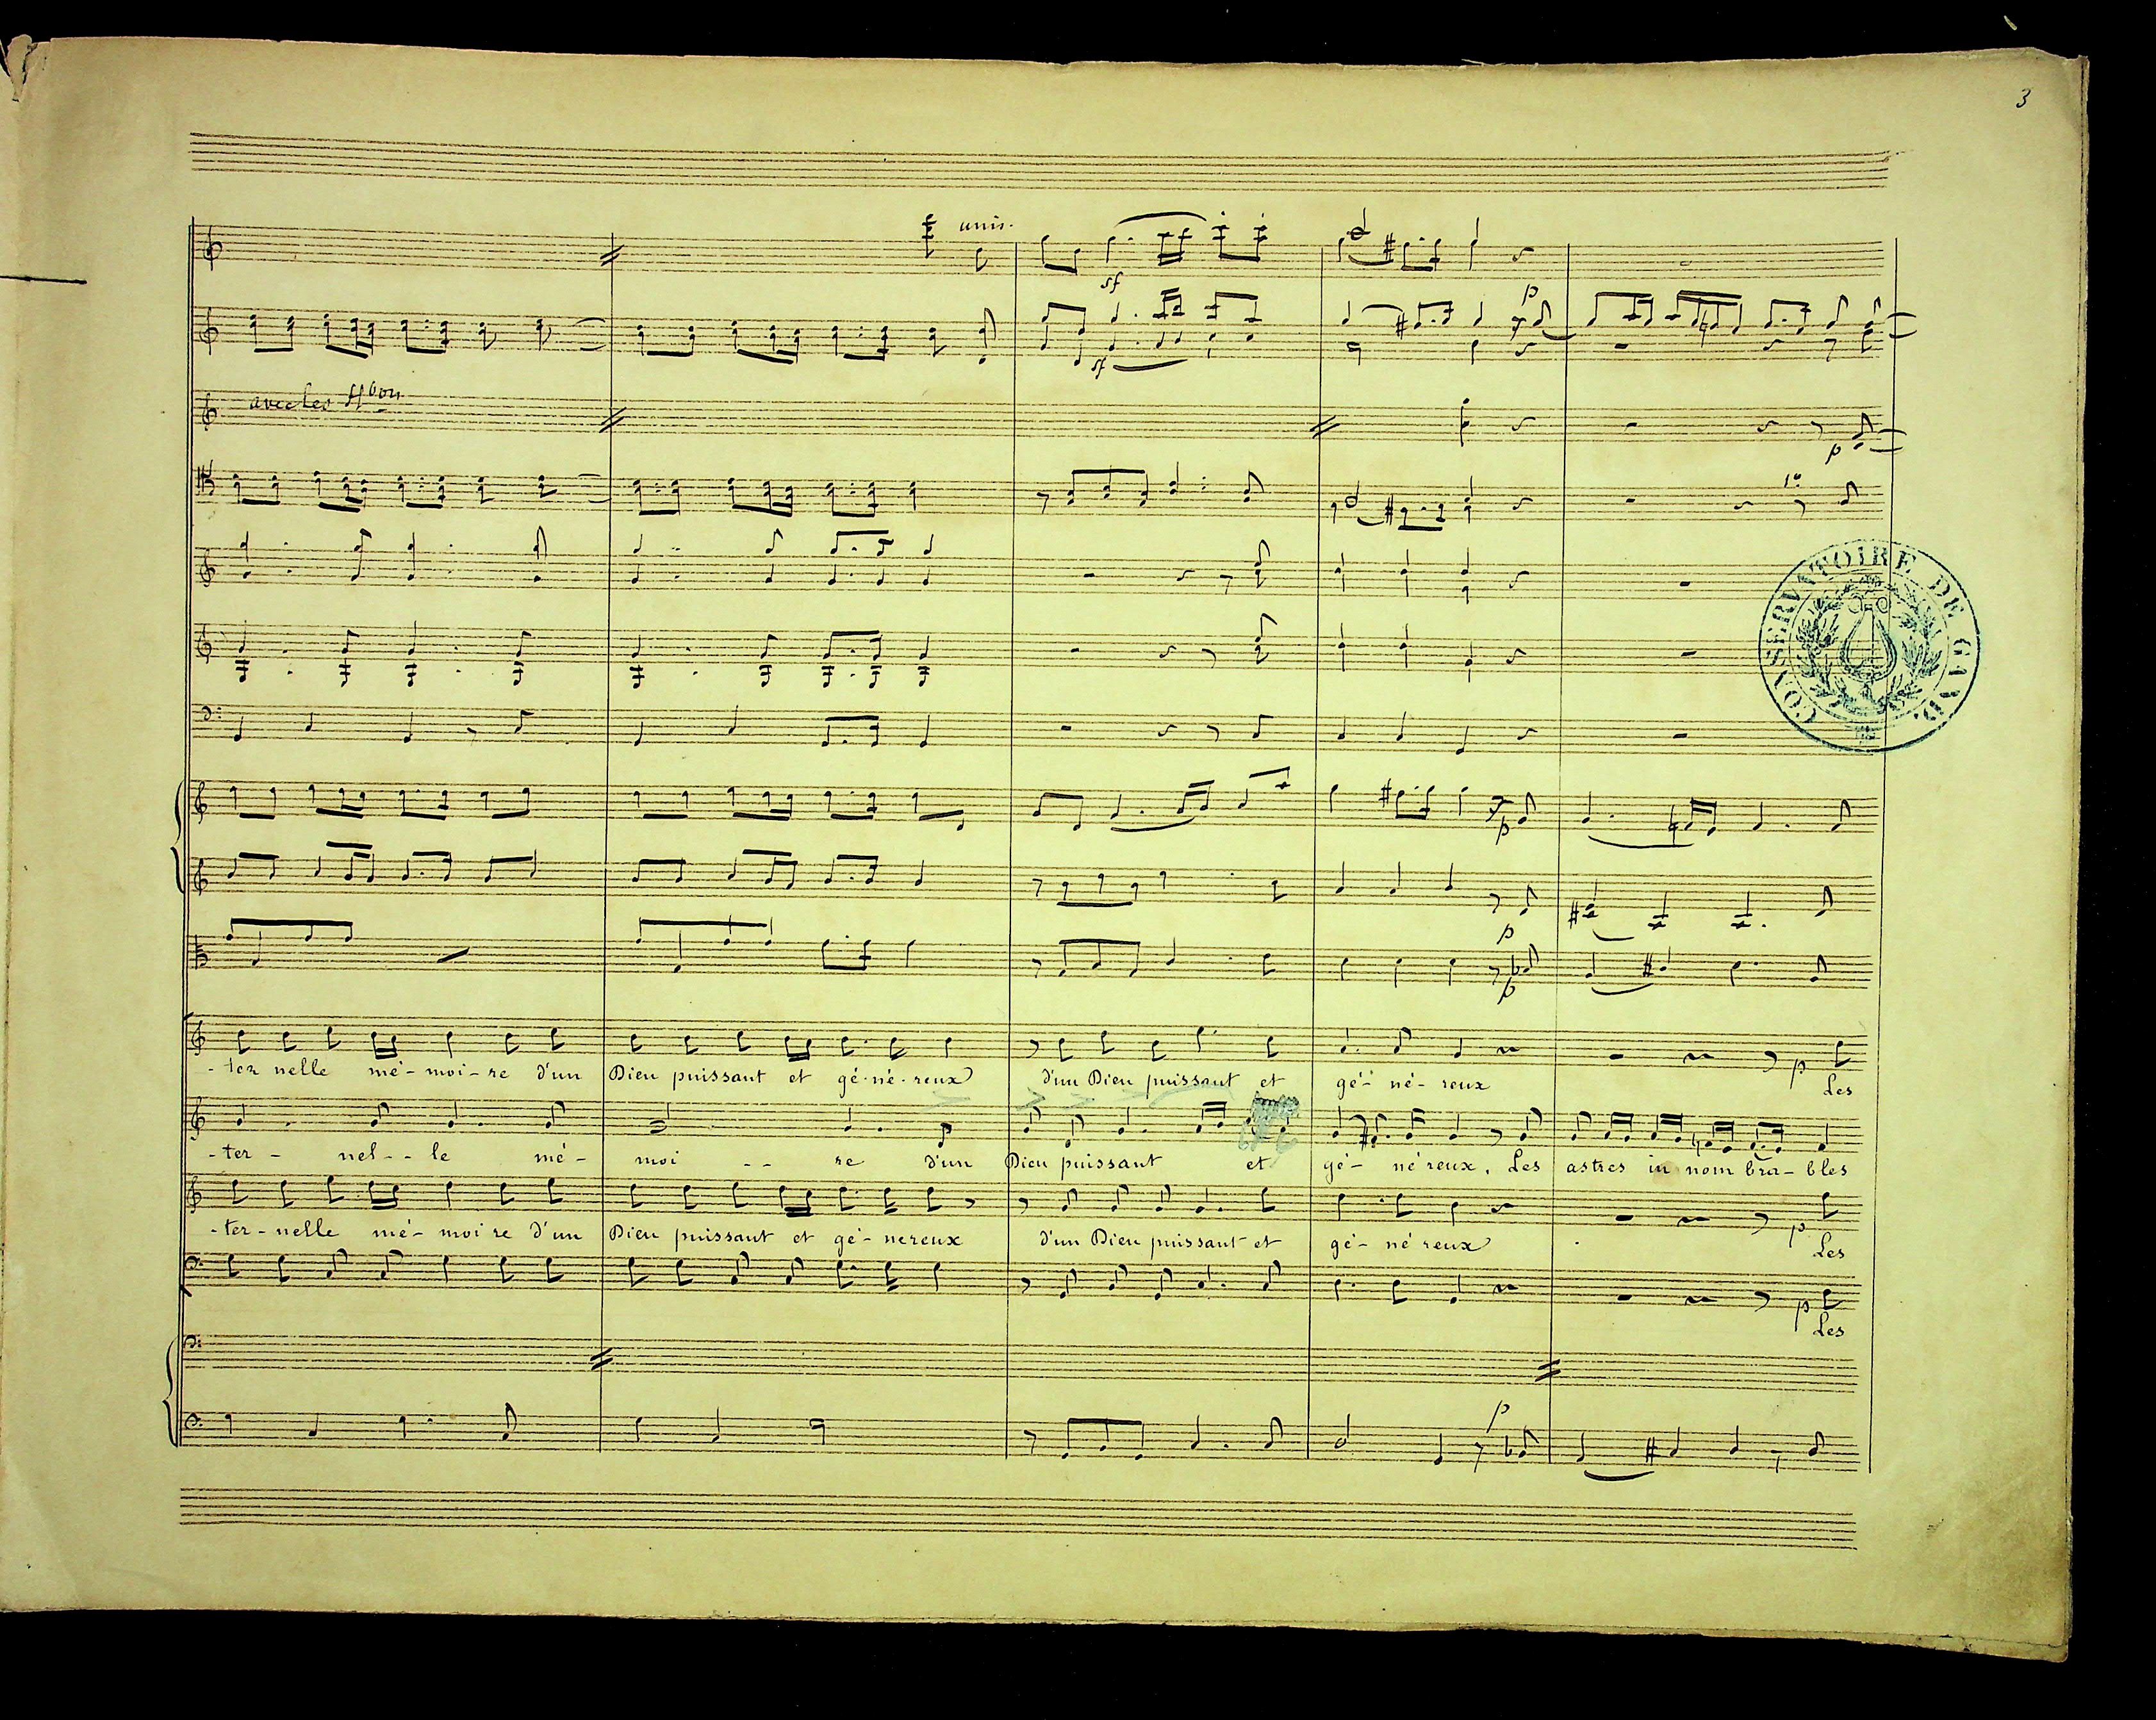 3
unis.
sf
p
sf
avec les Htbois
p
1º
CONSERVATOIRE DE GAND.
p
p
p
- ter nelle mé - moi - re d'un Dieu puissant et gé - né - reux d'un Dieu puissant et gé - né - reux p Les
- ter - nel - - le mé - moi - - re d'un Dieu puissant et gé - né reux. Les astres in nom bra - bles
- ter - nelle mé - moi re d'un Dieu puissant et gé - nereux d'un Dieu puissant et gé - né reux p Les
p Les
p